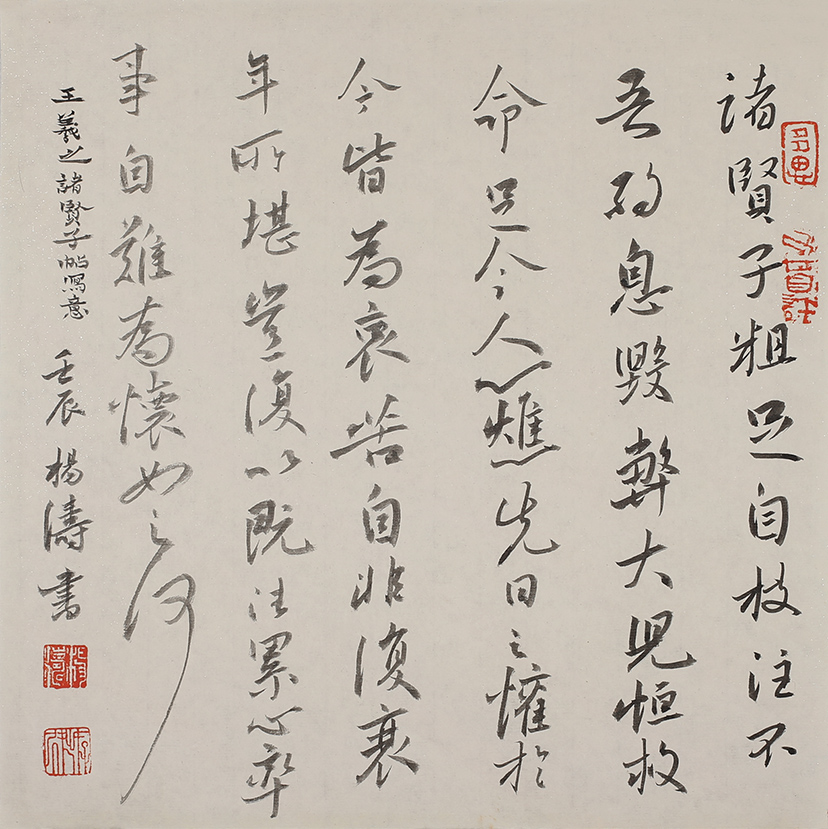 諸賢子粗足自枝注不
吾息毀弊大兒恒救
命足令人心燋先日之懽於
今皆為哀苦自非復衰
年所堪豈復以既往累心率
事自難為懷如之何
王羲之諸賢子帖寫意
壬辰楊濤書